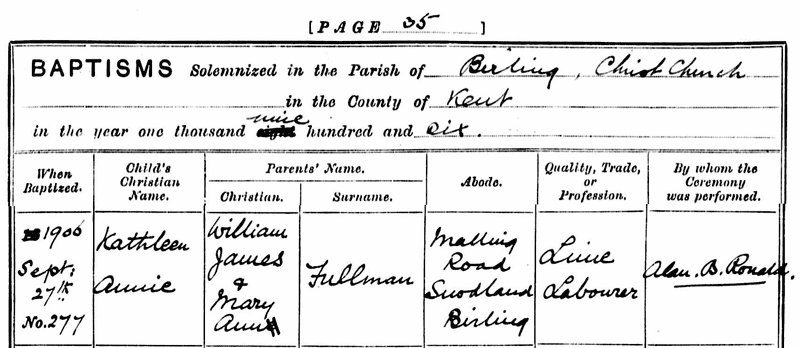 [PAGE 35 ]
BAPTISMS Solemnized in the Parish of Birling, Christ Church
in the County of Kent
nine
in the year one thousand eight hundred and six.
When Baptized.
Child's Christian Name.
Parents' Name.
Christian.
Surname.
Abode.
Quality, Trade, or Profession.
By whom the Ceremony was performed.
1906
Sept:
27th
No. 277
Kathleen
Annie
William
James
&
Mary
Ann
Fullman
Malling
Road
Snodland
Birling
Lime
Labourer
Alan. B. Ronald.